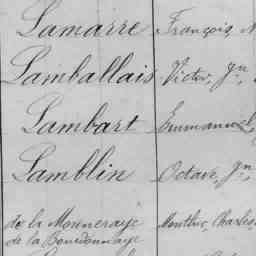 Lamarre François
Lamballais Victor, Jn,
Lambart Emmanuel,
Lamblin Octave, Jn,
de la Monneraye Monthuc, Charles,
de la Bourdonnaye